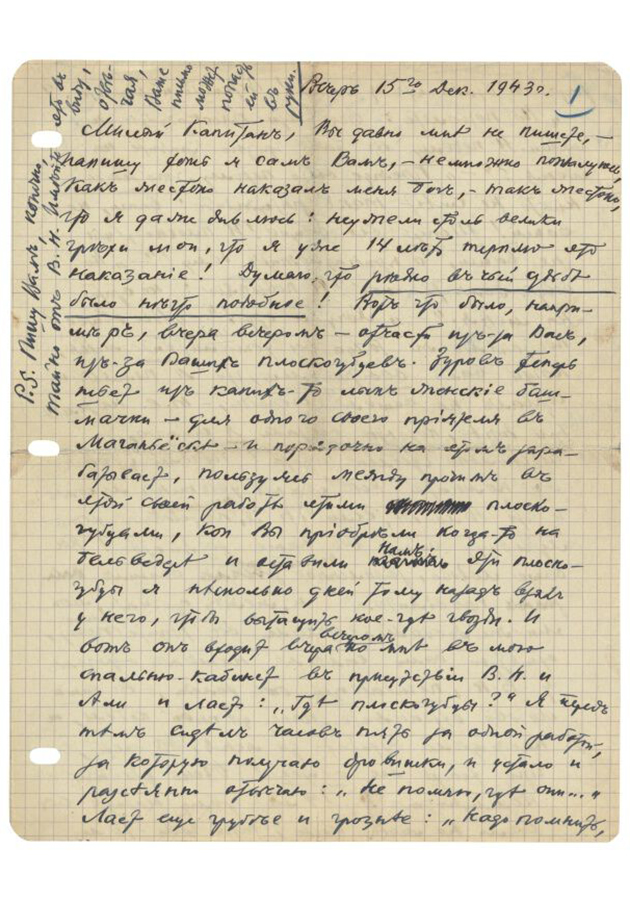 Вечеръ 15го Дек. 1943 г.
1
Милый Капитанъ, Вы давно мнѣ не пишете, –
напишу хоть я самъ Вамъ, – немножко пожалуюсь.
Какъ жестоко наказалъ меня Богъ, – такъ жестоко,
что я даже дивлюсь: неужели столь велики
грѣхи мои, что я уже 14 лѣтъ терплю это
наказаніе! Думаю, что рѣдко въ чьей судьбѣ
было нѣчто подобное! Вотъ что было, напри-
мѣръ, вчера вечеромъ – отчасти изъ-за Васъ,
изъ-за Вашихъ плоскогубцевъ. Зуровъ теперь
шьетъ изъ какихъ-то женскіе баш-
мачки – для одного своего пріятеля въ
и порядочно на этомъ зара-
батываетъ, пользуясь между прочимъ въ
этой своей работѣ этими плоско-
губцами, кои Вы пріобрѣли когда-то на
Бельведерѣ и оставили намъ. Эти плоско-
губцы я нѣсколько дней тому назадъ взялъ
у него, чтобы вытащить кое-гдѣ гвозди. И
вотъ онъ входитъ вчера вечеромъ ко мнѣ въ мою
спальню-кабинетъ въ присутствіи В. Н. и
Али и лаетъ: „Гдѣ плоскогубцы?“ Я передъ
тѣмъ сидѣлъ часовъ пять за одной работой,
за которую получаю грошики, и устало и
разсѣянно отвѣчаю: „Не помню, гдѣ они...“
Лаетъ еще грубѣе и грознѣе: „Надо помнить,
P.S. Пишу Вамъ, конечно,
тайно отъ В. Н. Имѣйте
это въ
виду,
отвѣ-
чая,
Ваше
письмо
можетъ
попасть
ей
въ
руки.